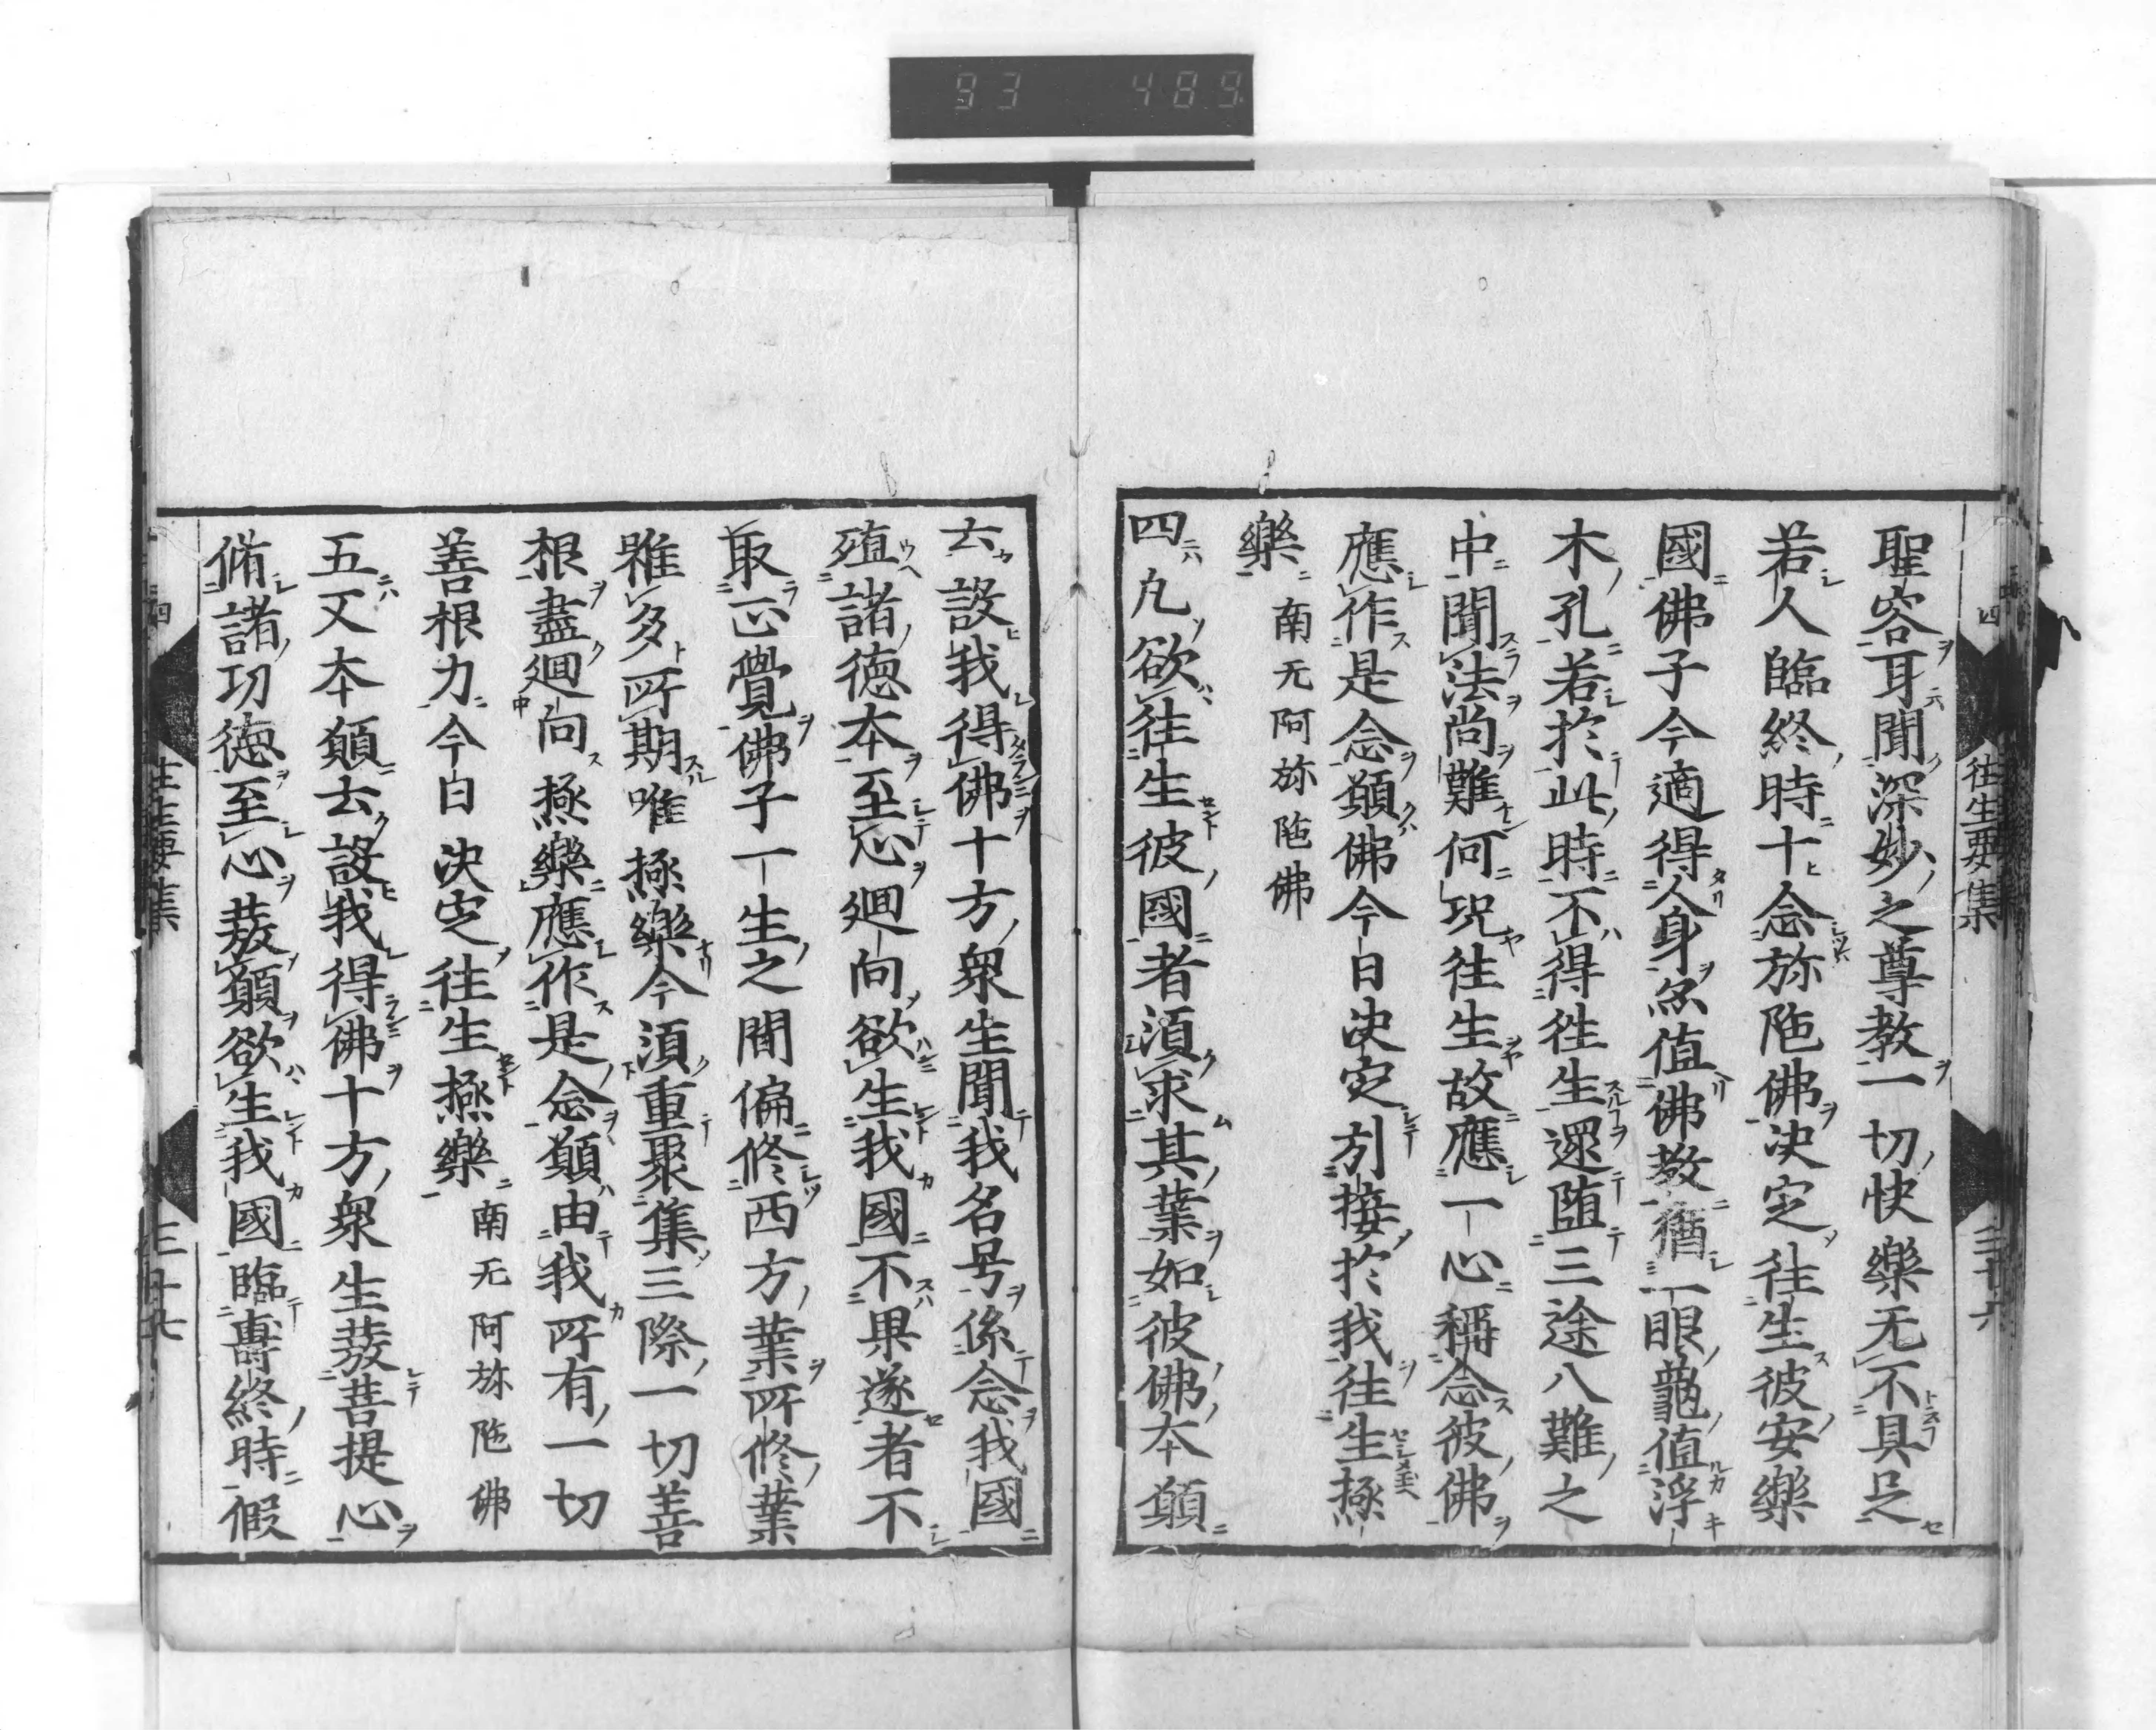 93 489
往生要集
聖容耳聞深妙之尊教一切快樂无不具足
若人臨終時十念弥陁佛决定往生彼安樂
國佛子今適得人身亦值佛教猶一眼龜值浮
木孔若於此時不得徃生還堕三途八難之
中聞法尚難何况往生故應一心稱念彼佛
應作是念願佛今日决定引接於我往生極
樂 南无阿弥陁佛
四凡欲往生彼國者須求其業如彼佛本願
云設我得佛十方衆生聞我名号係念我國
殖諸德本至心廻向欲生我國不果遂者不
取正覺佛子一生之間偏修西方業所修業
雖多所期唯極樂今須重聚集三際一切善
根盡廻向極樂應作是念願由我所有一切
善根力今日决定往生極樂 南无阿弥陁佛
五又本願云設我得佛十方衆生發菩提心
脩諸功德至心發願欲生我國臨壽終時假
往生要集